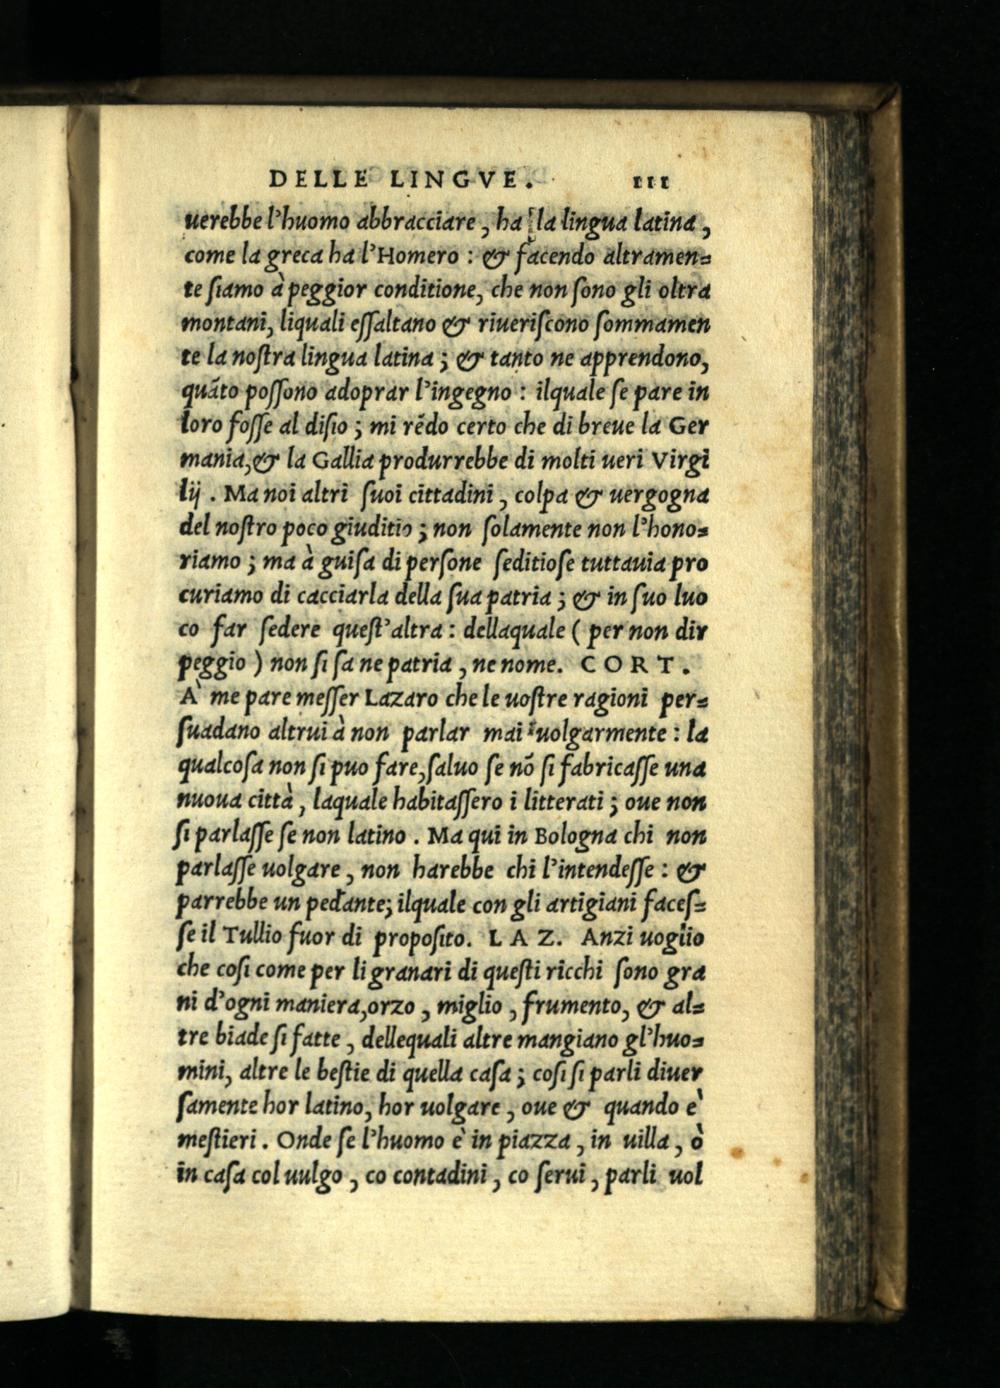 DELLE LINGVE. III
uerebbe l'huomo abbracciare, ha la lingua latina,
come la greca ha l'Homero : & facendo altramen=
te ſiamo à peggior conditione, che non ſono gli oltra
montani, liquali eſſaltano & riueriſcono ſommamen
te la noſtra lingua latina ; & tanto ne apprendono,
quãto poſſono adoprar l'ingegno : ilquale ſe pare in
loro foſſe al diſio ; mi rẽdo certo che di breue la Ger
mania, & la Gallia produrrebbe di molti ueri Virgi
lij . Ma noi altri ſuoi cittadini, colpa & uergogna
del noſtro poco giuditio ; non ſolamente non l'hono=
riamo ; ma à guiſa di perſone ſeditioſe tuttauia pro
curiamo di cacciarla della ſua patria ; & in ſuo luo
co far ſedere queſt'altra : dellaquale ( per non dir
peggio ) non ſi ſa ne patria, ne nome. CORT.
A' me pare meſſer Lazaro che le uoſtre ragioni per=
ſuadano altrui à non parlar mai uolgarmente : la
qualcoſa non ſi puo fare, ſaluo ſe nõ ſi fabricaſſe una
nuoua città, laquale habitaſſero i litterati ; oue non
ſi parlaſſe ſe non latino . Ma qui in Bologna chi non
parlaſſe uolgare, non harebbe chi l'intendeſſe : &
parrebbe un pedante; ilquale con gli artigiani faceſ=
ſe il Tullio fuor di propoſito. LAZ. Anzi uoglio
che coſi come per li granari di queſti ricchi ſono gra
ni d'ogni maniera, orzo, miglio, frumento, & al=
tre biade ſi fatte, dellequali altre mangiano gl'huo=
mini, altre le beſtie di quella caſa ; coſi ſi parli diuer
ſamente hor latino, hor uolgare, oue & quando e'
meſtieri . Onde ſe l'huomo è in piazza, in uilla, ò
in caſa col uulgo, co contadini, co ſerui, parli uol